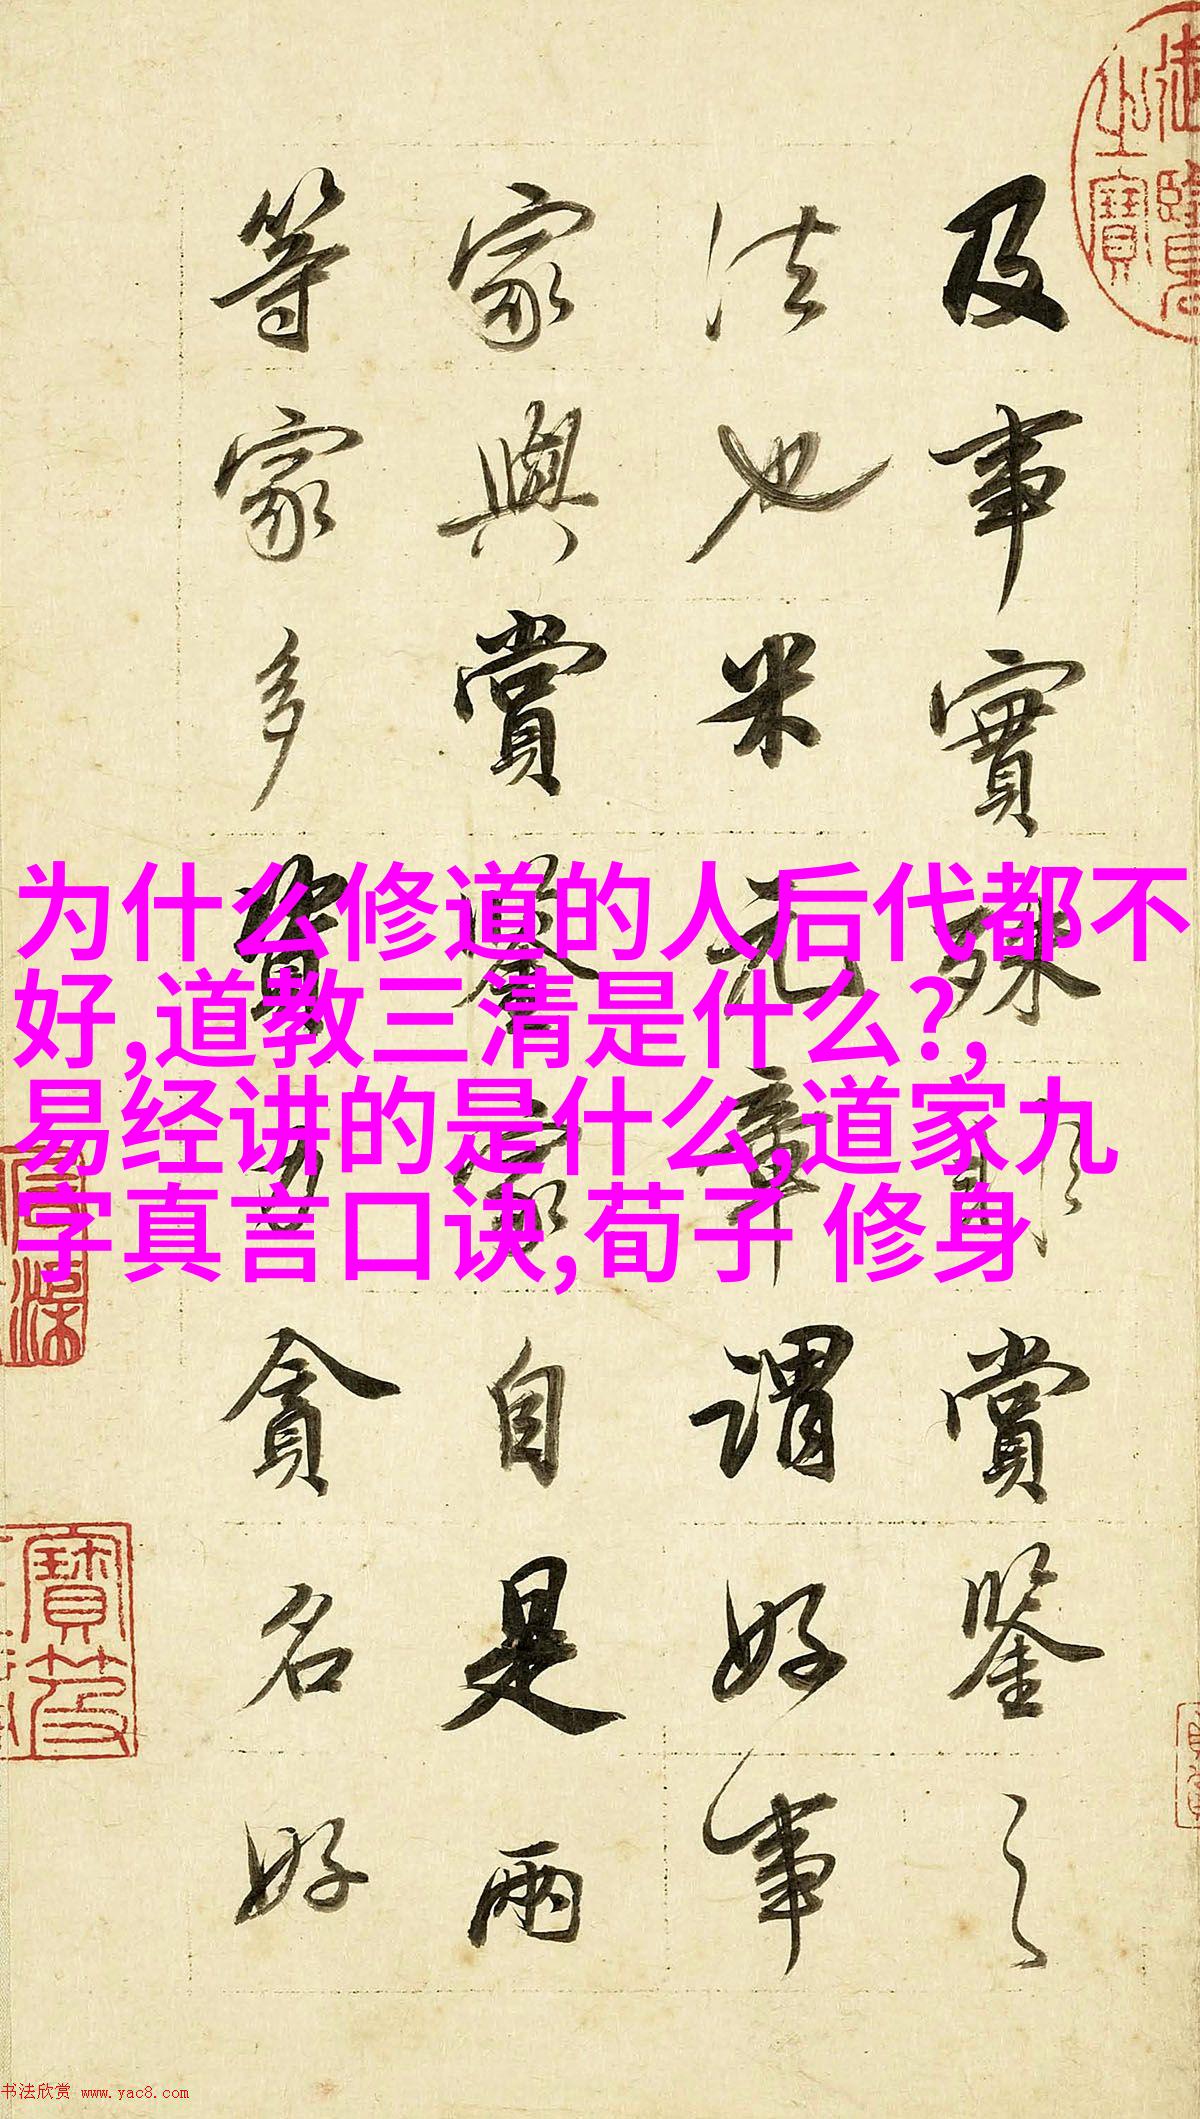 御覽之寶
及事實殊賞鑒之
法也米元章謂好事
家與賞鑒家自是兩
等家多資力貪名好
为什么修道的人后代都不
好,道教三清是什么?,
易经讲的是什么,道家九
字真言口诀,荀子 修身
寶笈
书法欣赏 www.yac8.com